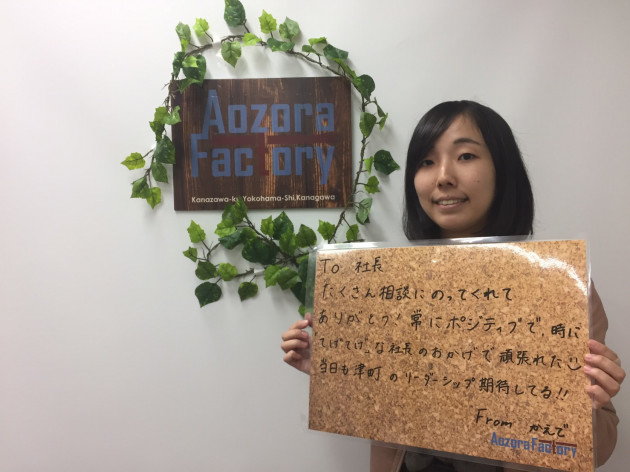 Aozora
Factory
Kanazawa-ku Yokohama-Shi,Kanagawa
To 社長
たくさん相談にのってくれて
ありがとう！常にポジティブで、時に
てげてげ、な社長のおかげで頑張れた
当日も津町のリーダーシップ期待してる!!
From かえで
Aozora Factory